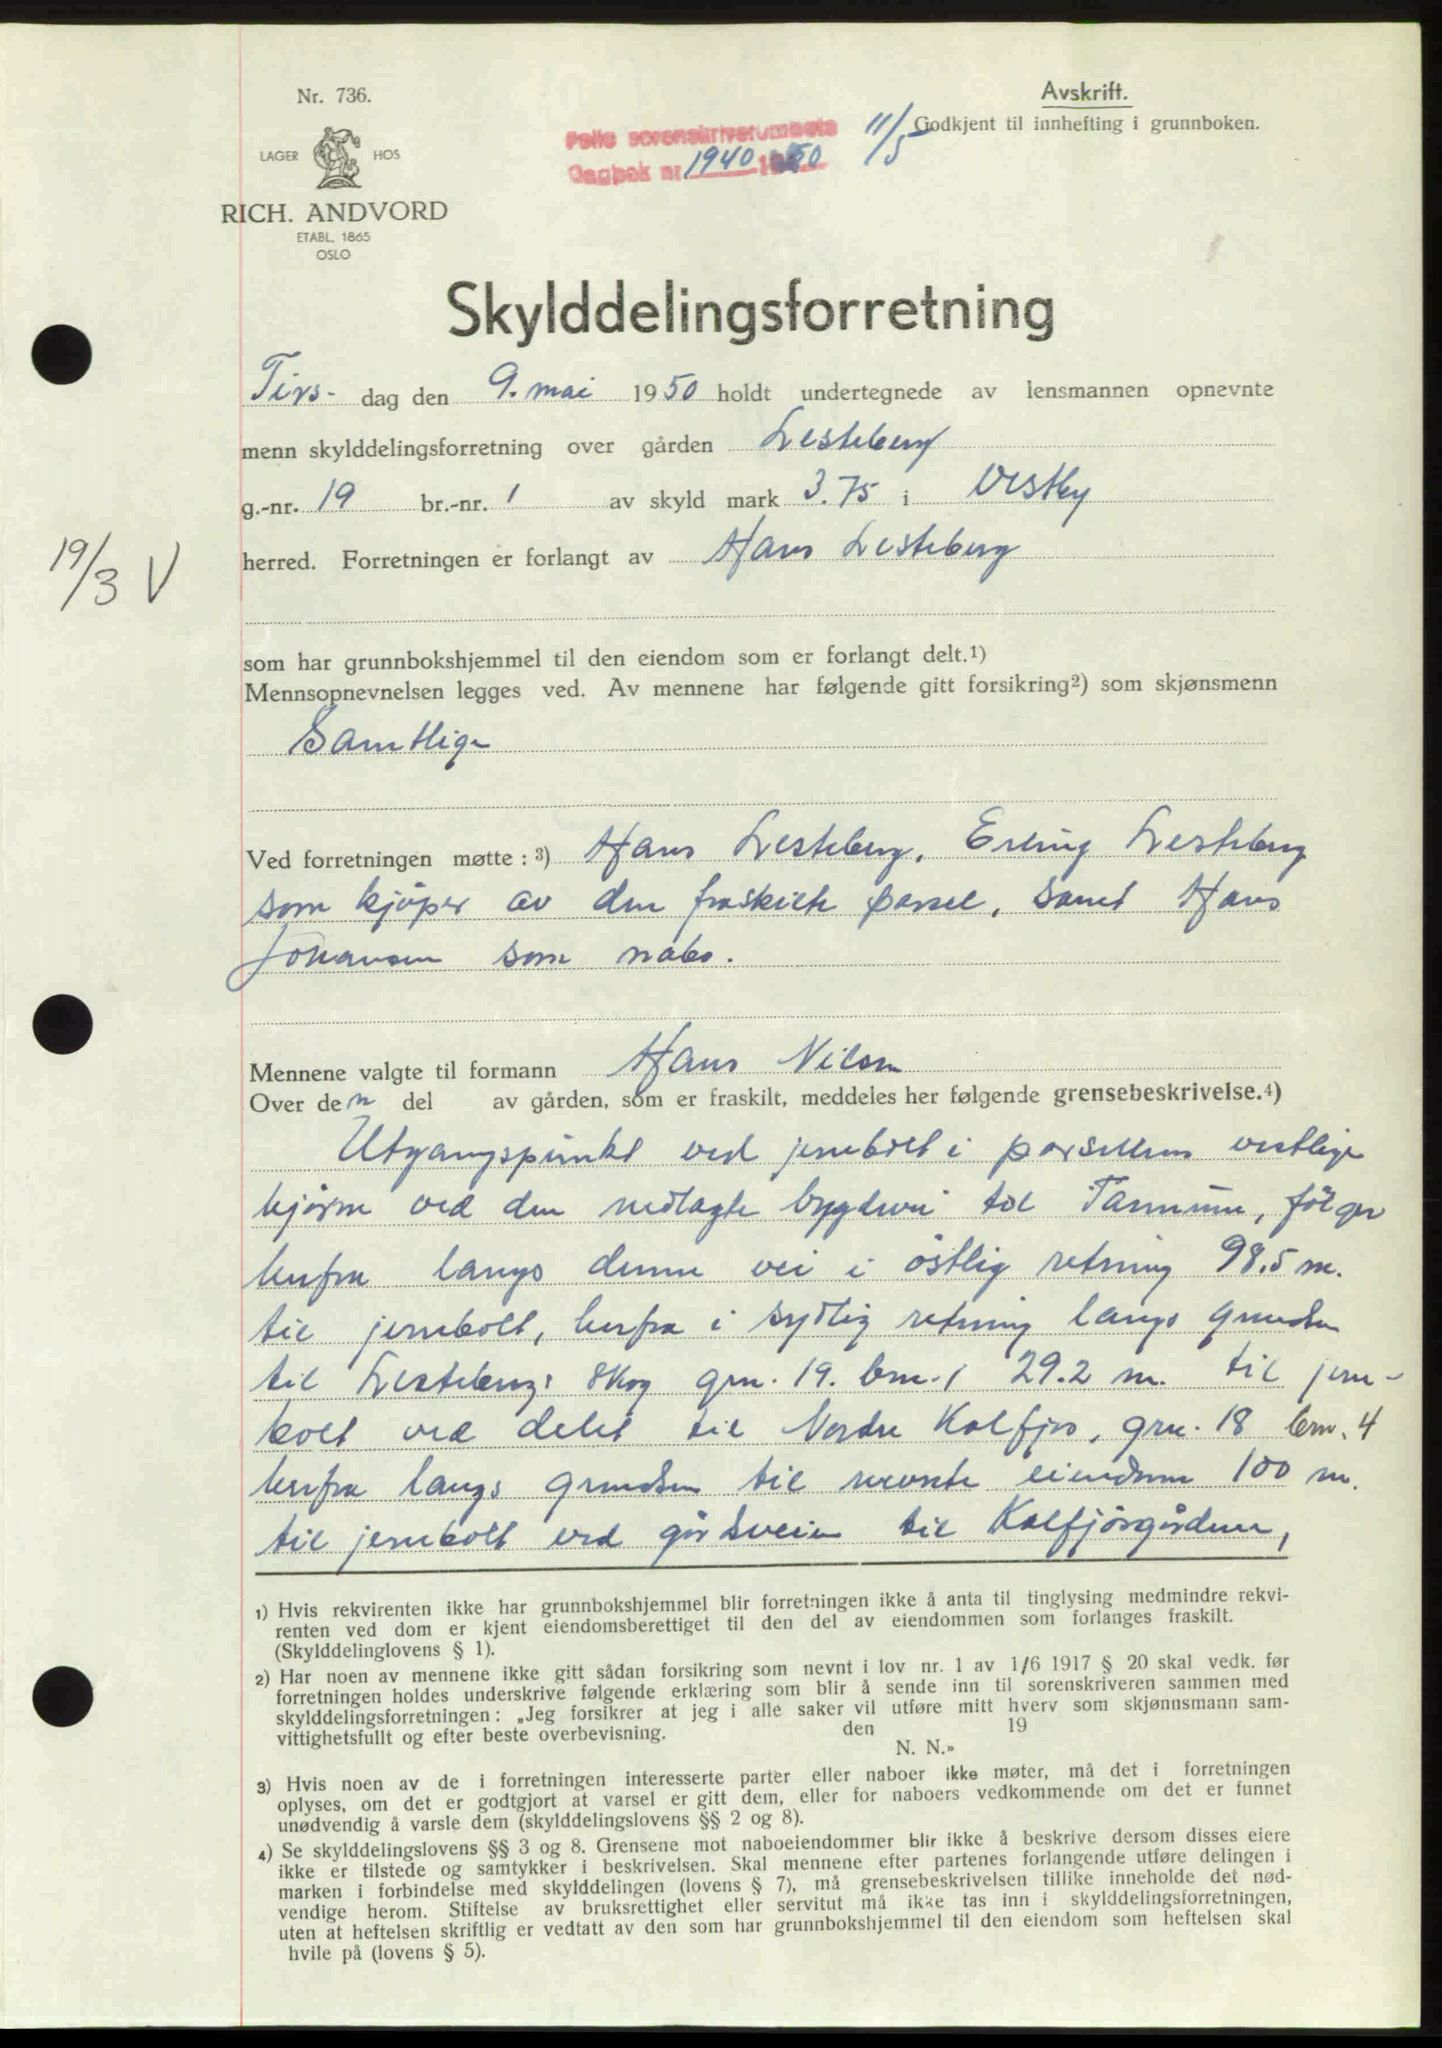 Nr. 736.
LAGER HOS
RICH. ANDVORD
ETABL. 1865
OSLO
Follo sorenskriverembete
Dagbok nr. 1940 1950
11/5
Avskrift.
Godkjent til innhefting i grunnboken.
Skylddelingsforretning
Tirs- dag den 9. mai 1950 holdt undertegnede av lensmannen opnevnte
menn skylddelingsforretning over gården Lesteberg
g.-nr. 19 br.-nr. 1 av skyld mark 3.75 i Vestby
19/3 V
herred. Forretningen er forlangt av Hans Lesteberg
som har grunnbokshjemmel til den eiendom som er forlangt delt.1)
Mennsopnevnelsen legges ved. Av mennene har følgende gitt forsikring2) som skjønsmenn
Samtlige
Ved forretningen møtte: 3) Hans Lesteberg, Erling Lesteberg
som kjøper av den fraskilte parsel, samt Hans
Johansen som nabo.
Mennene valgte til formann Hans Nilsen
Over den del av gården, som er fraskilt, meddeles her følgende grensebeskrivelse.4)
Utgangspunkt ved jernbolt i parsellens vestlige
hjørne ved den nedlagte bygdevei til Tannum, følger
herfra langs denne vei i østlig retning 98.5 m.
til jernbolt, herfra i sydlig retning langs grensen
til Lestebergs skog gnr. 19. bnr. 1 29.2 m. til jern-
bolt ved delet til Nordre Kolfjøs, gnr. 18 bnr. 4
herfra langs grensen til nevnte eiendom 100 m.
til jernbolt ved gårdsveien til Kolfjøsgården,
1) Hvis rekvirenten ikke har grunnbokshjemmel blir forretningen ikke å anta til tinglysing medmindre rekvi-
renten ved dom er kjent eiendomsberettiget til den del av eiendommen som forlanges fraskilt.
(Skylddelinglovens § 1).
2) Har noen av mennene ikke gitt sådan forsikring som nevnt i lov nr. 1 av 1/6 1917 § 20 skal vedk. før
forretningen holdes underskrive følgende erklæring som blir å sende inn til sorenskriveren sammen med
skylddelingsforretningen: „Jeg forsikrer at jeg i alle saker vil utføre mitt hverv som skjønnsmann sam-
vittighetsfullt og efter beste overbevisning. den 19
N. N.»
3) Hvis noen av de i forretningen interesserte parter eller naboer ikke møter, må det i forretningen
oplyses, om det er godtgjort at varsel er gitt dem, eller for naboers vedkommende om det er funnet
unødvendig å varsle dem (skylddelingslovens §§ 2 og 8).
4) Se skylddelingslovens §§ 3 og 8. Grensene mot naboeiendommer blir ikke å beskrive dersom disses eiere
ikke er tilstede og samtykker i beskrivelsen. Skal mennene efter partenes forlangende utføre delingen i
marken i forbindelse med skylddelingen (lovens § 7), må grensebeskrivelsen tillike inneholde det nød-
vendige herom. Stiftelse av bruksrettighet eller servitut må ikke tas inn i skylddelingsforretningen,
uten at heftelsen skriftlig er vedtatt av den som har grunnbokshjemmel til den eiendom som heftelsen skal
hvile på (lovens § 5).